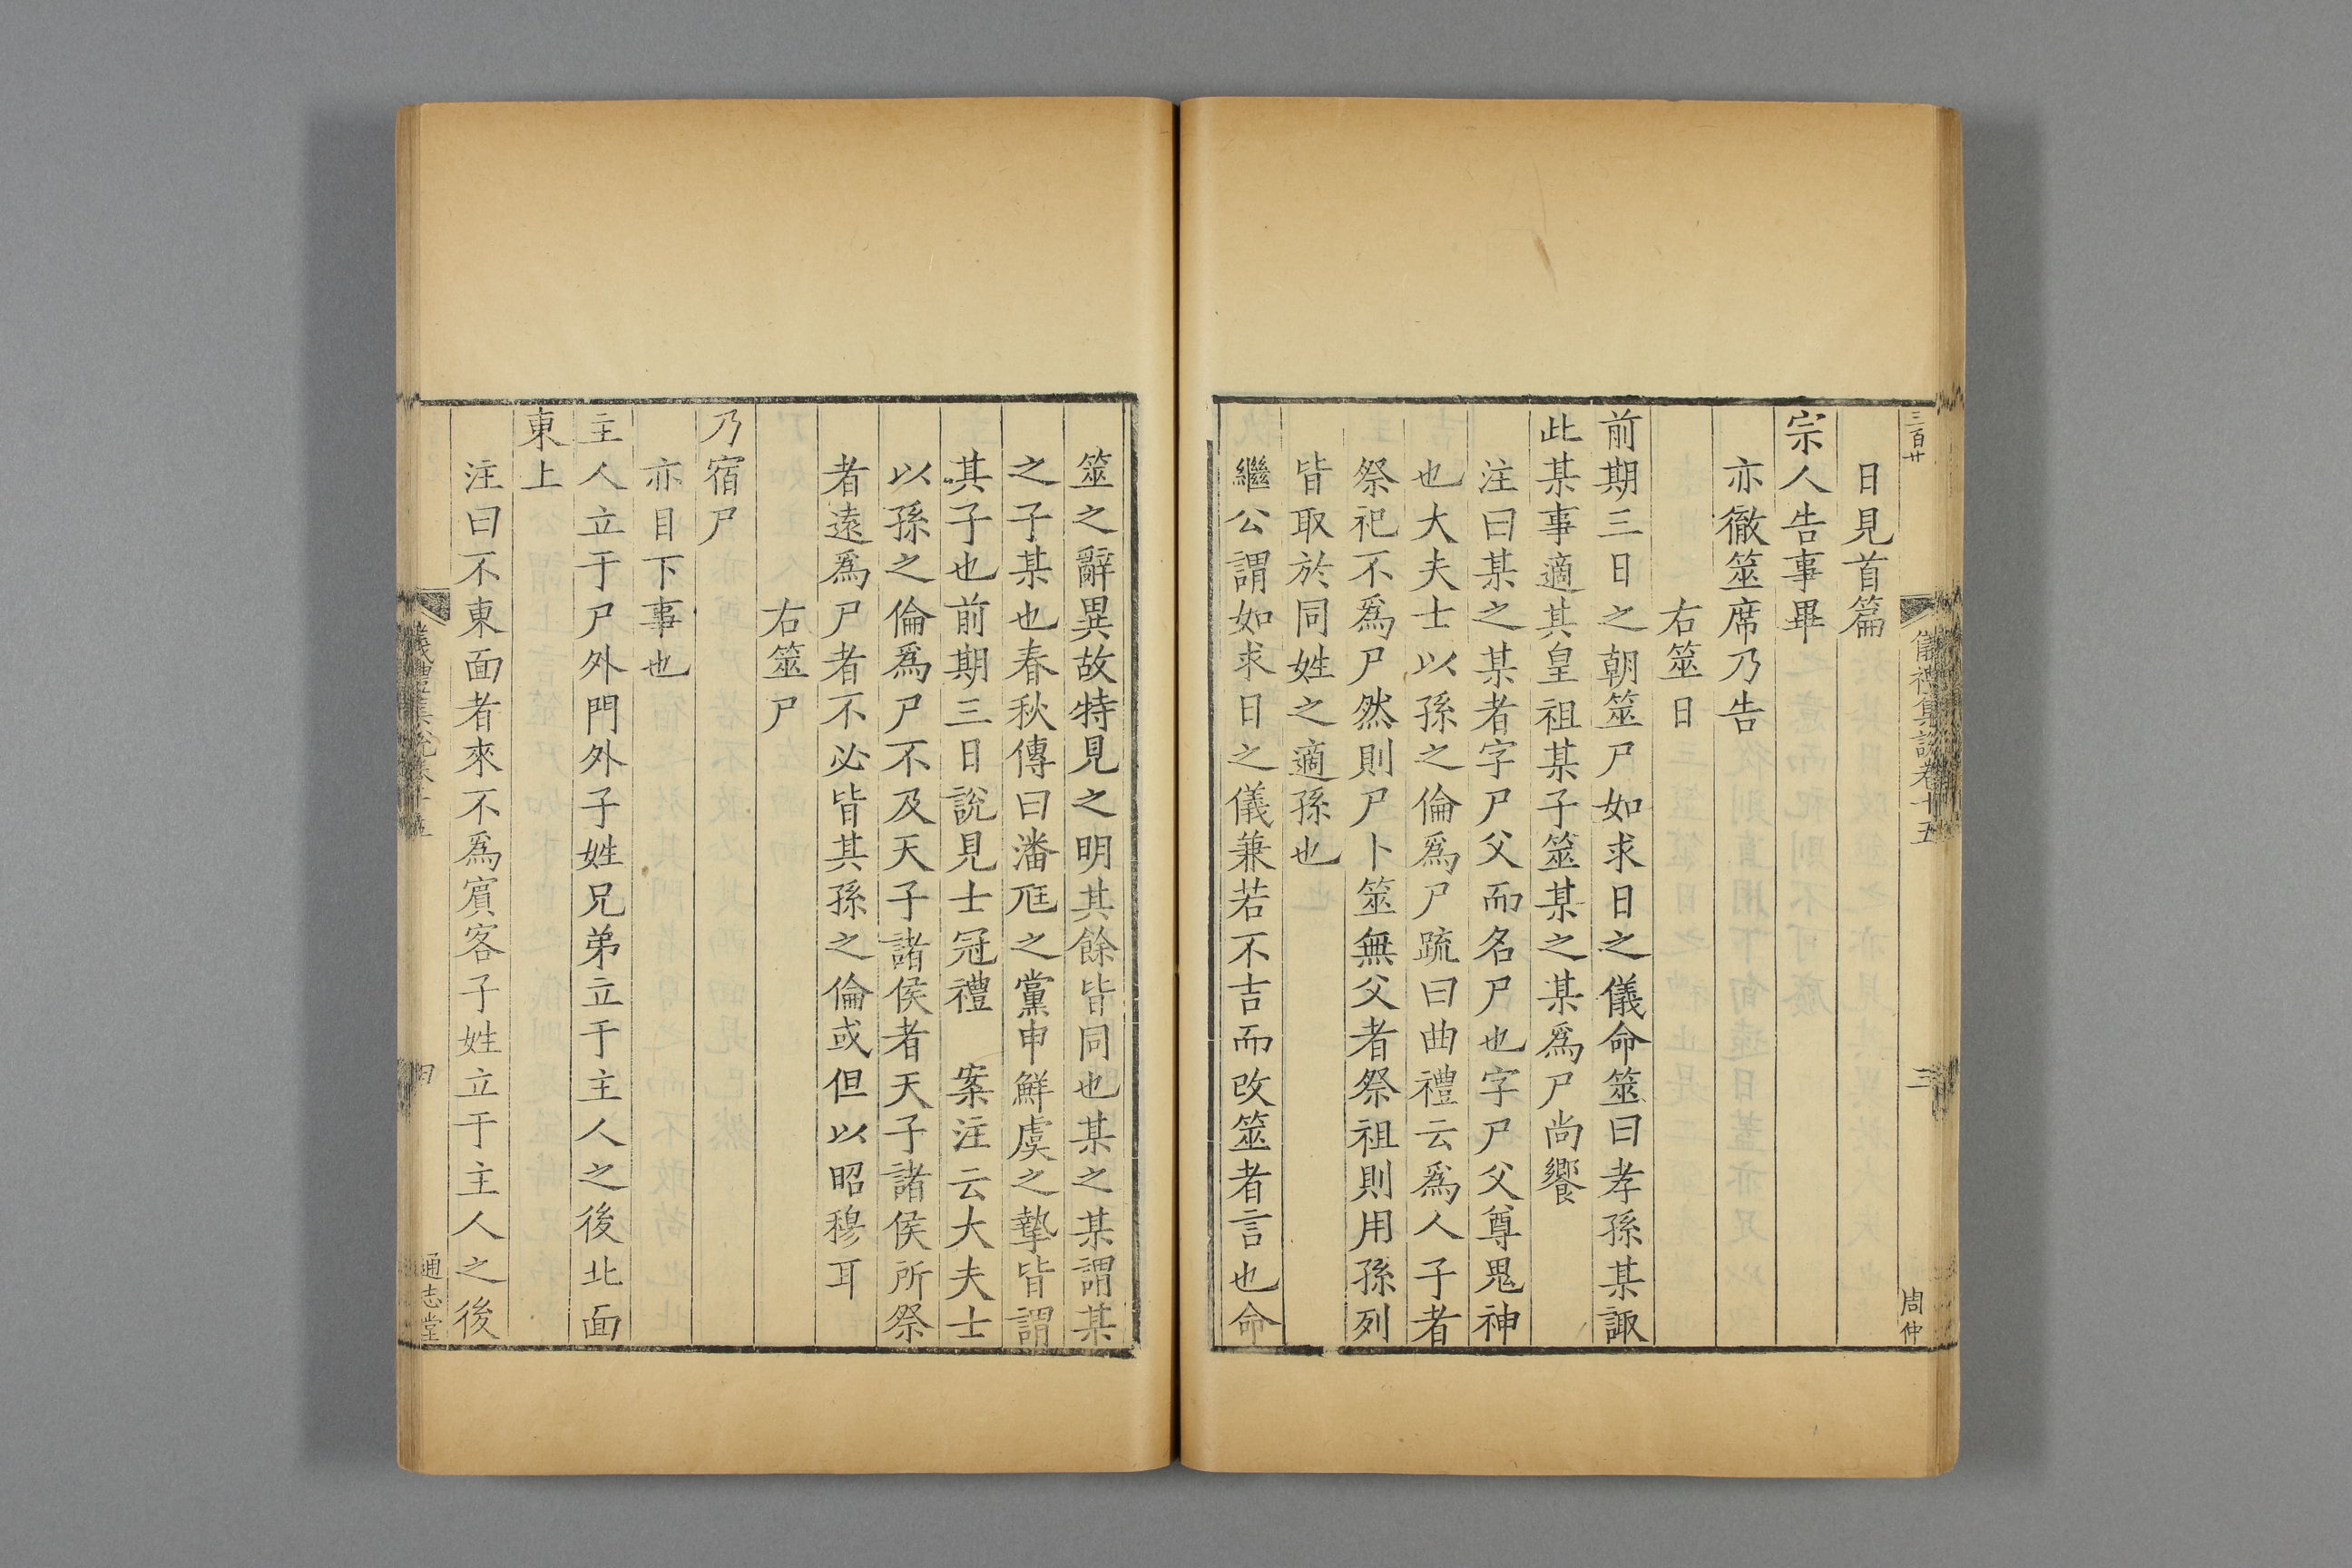 三百廿
儀禮集說卷十五
三
周仲
日見首篇
宗人告事畢
亦徹筮席乃告
右筮日
前期三日之朝筮尸如求日之儀命筮曰孝孫某諏
此某事適其皇祖某子筮某之某爲尸尚饗
注曰某之某者字尸父而名尸也字尸父尊鬼神
也大夫士以孫之倫爲尸疏曰曲禮云爲人子者
祭祀不爲尸然則尸卜筮無父者祭祖則用孫列
皆取於同姓之適孫也
繼公謂如求日之儀兼若不吉而改筮者言也命
筮之辭異故特見之明其餘皆同也某之某謂某
之子某也春秋傳曰潘尫之黨申鮮虞之摯皆謂
其子也前期三日說見士冠禮　案注云大夫士
以孫之倫爲尸不及天子諸侯者天子諸侯所祭
者遠爲尸者不必皆其孫之倫或但以昭穆耳
右筮尸
乃宿尸
亦目下事也
主人立于尸外門外子姓兄弟立于主人之後北面
東上
注曰不東面者來不爲賓客子姓立于主人之後
儀禮集說卷十五
四
通志堂